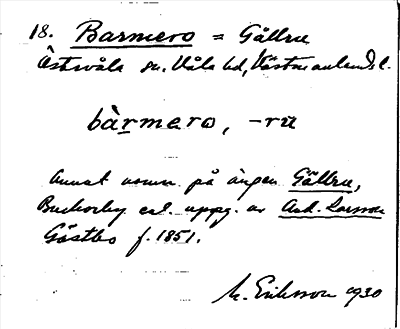 18. Barmero = Gällru
Östervåla sn. Våla hd, Västmanlands l.
bàrmero, -ru
Annat namn på ängen Gällru,
enl. uppg. av And. Larsson
Gästbo f. 1851.
M. Eriksson 1930